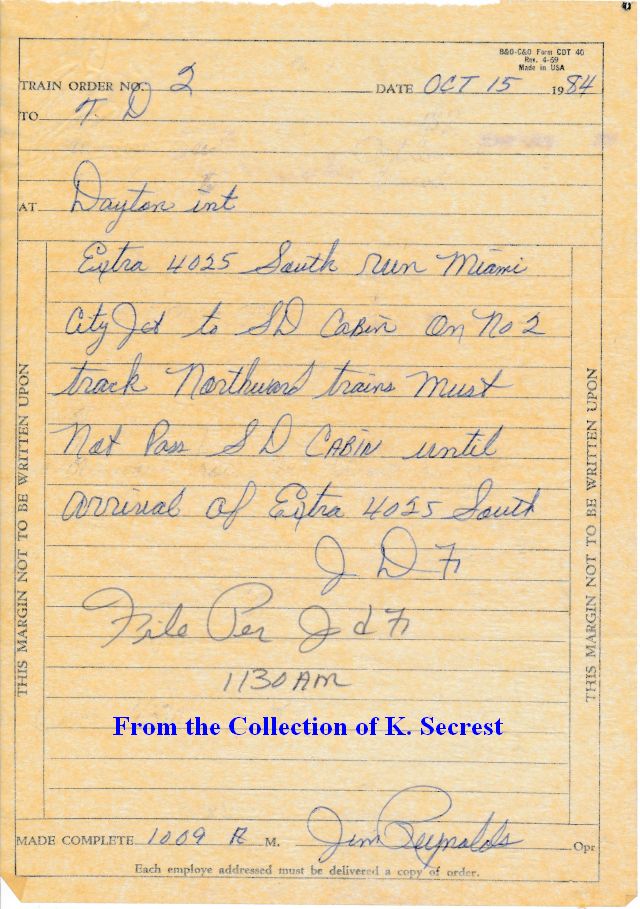 B&O-C&O Form CDT 40
Rev. 4-69
Made in USA
TRAIN ORDER NO. 2 DATE OCT 15 1984
TO T. D
AT Dayton int
Extra 4025 South run Miami
City Jct to SD Cabin On No 2
track Northward trains Must
Not Pass SD CABIN until
arrival of Extra 4025 South
J D F
File Per J d F
1130 AM
From the Collection of K. Secrest
MADE COMPLETE 1009 A M. Jim Reynolds Opr
Each employe addressed must be delivered a copy of order.
THIS MARGIN NOT TO BE WRITTEN UPON
THIS MARGIN NOT TO BE WRITTEN UPON